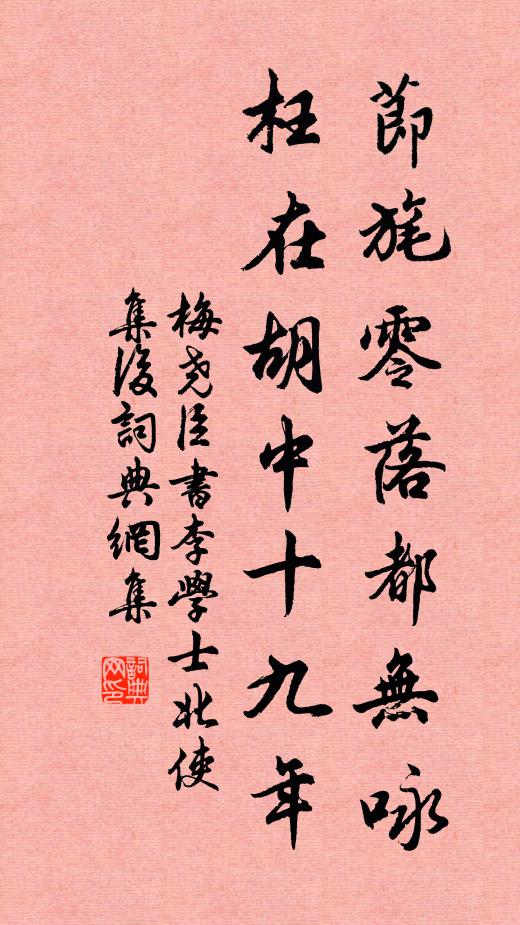 節旄零落都無咏
枉在胡中十九年
梅堯臣書李學士北使
集後詞典網集
詞典網印